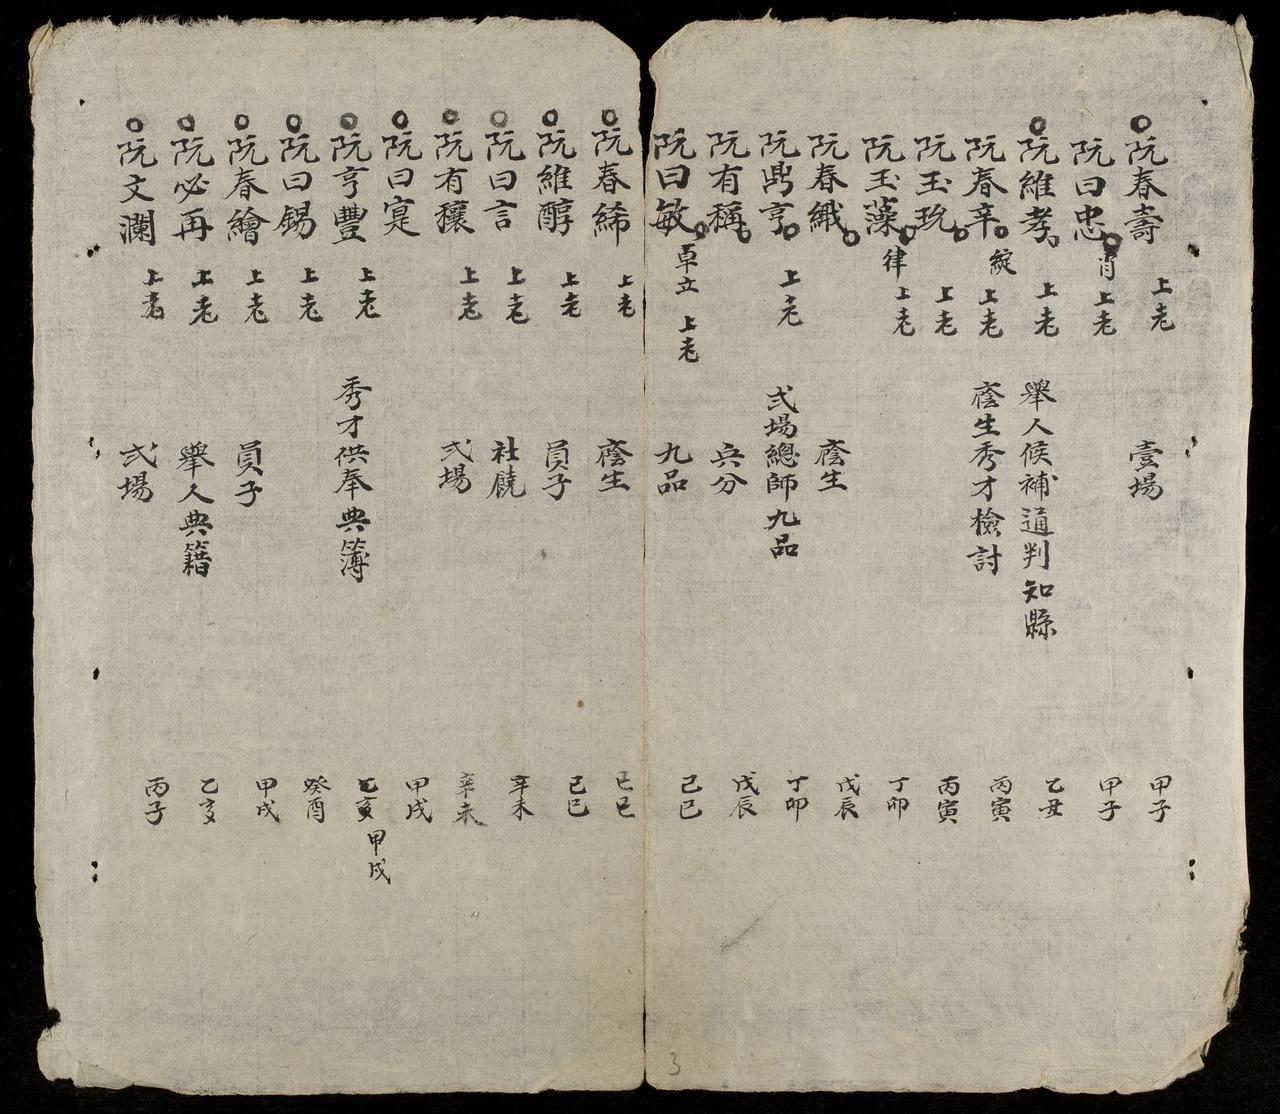 阮春壽 上老 壹場 甲子
阮曰忠 肖 上老 甲子
阮維孝 上老 舉人候補通判知縣 乙丑
阮春辛 綻 上老 廕生秀才檢討 丙寅
阮玉玧 上老 丙寅
阮玉藻 律 上老 丁卯
阮春織 廕生 戊辰
阮鼎亨 上老 弍場總師九品 丁卯
阮有稱 兵分 戊辰
阮曰敏 卓立 上老 九品 己巳
阮春絺 上老 廕生 己巳
阮維醇 上老 員子 己巳
阮曰言 上老 社饒 辛未
阮有穰 上老 弍場 辛未
阮曰寔 甲戌
阮亨豐 上老 秀才供奉典簿 乙亥 甲戌
阮曰錫 上老 癸酉
阮春繪 上老 員子 甲戌
阮必再 上老 舉人典籍 乙亥
阮文瀾 上老 弍場 丙子
3